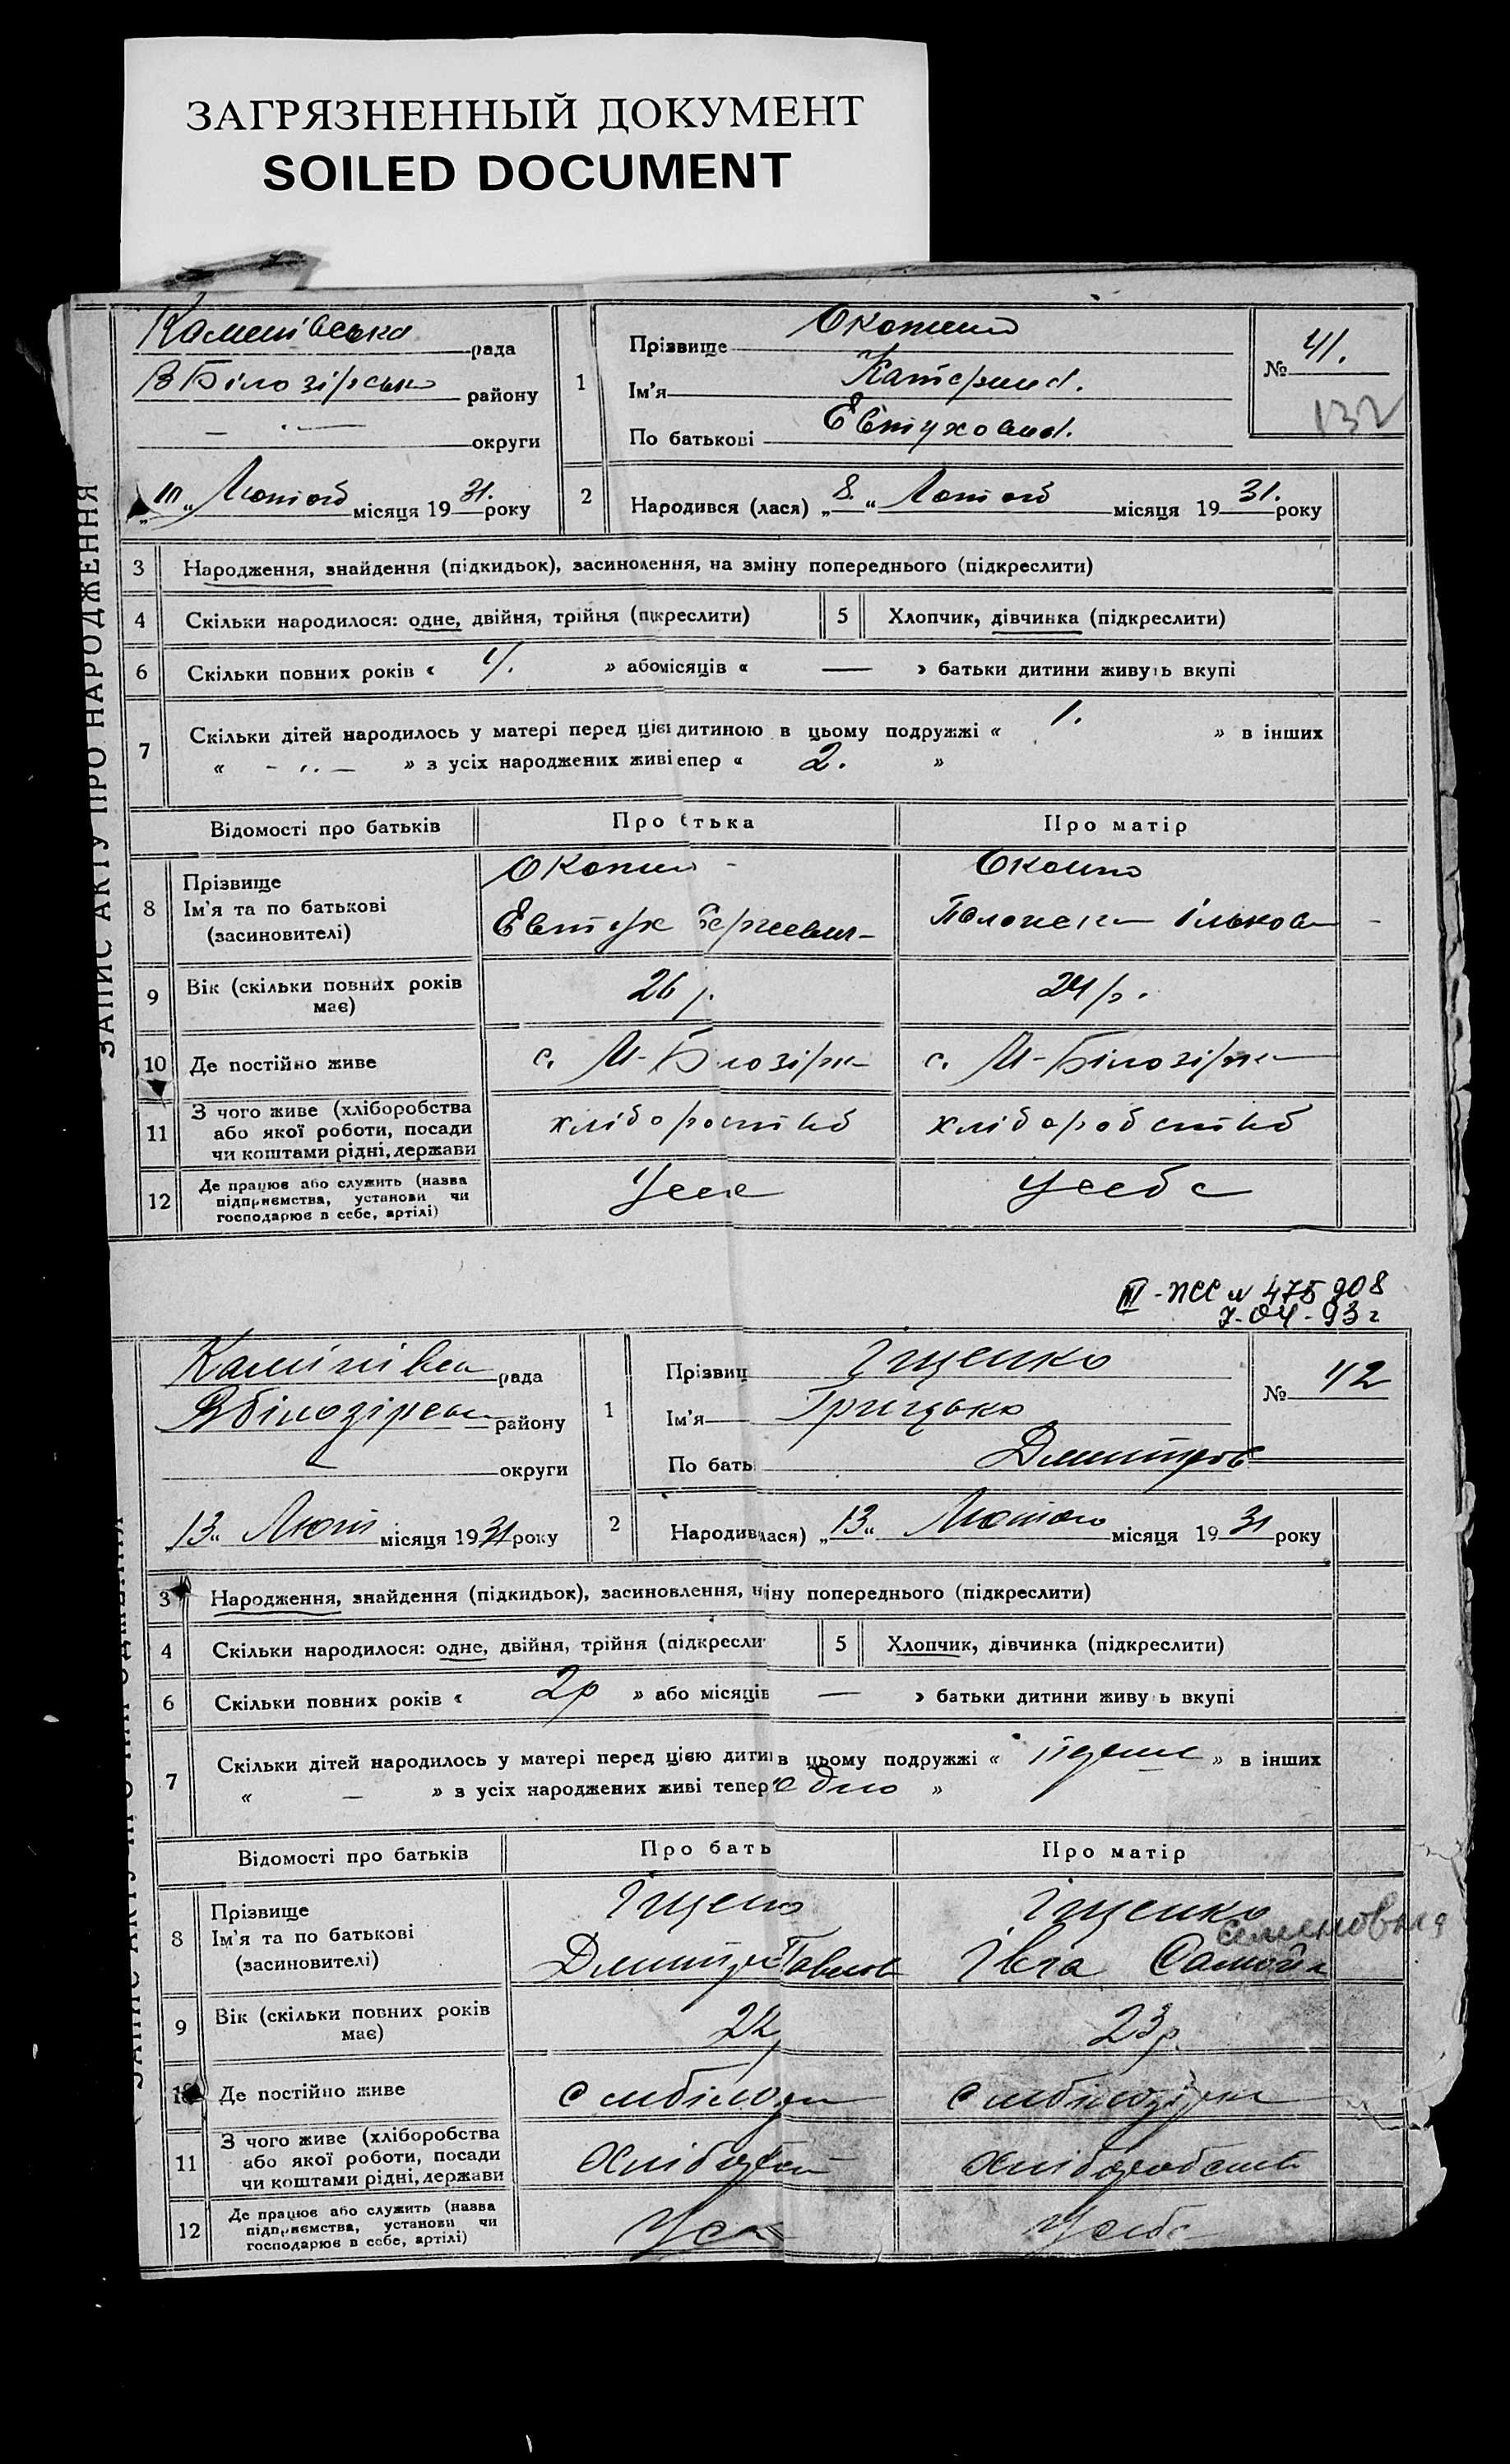 ЗАГРЯЗНЕННЫЙ ДОКУМЕНТ
SOILED DOCUMENT
ЗАПИС АКТУ ПРО НАРОДЖЕННЯ
рада
В Білозірсько району
округи
Лютого місяця 1931. року
1
Прізвище
Ім'я Катерина.
По батькові Евтуховна.
№ 41.
132
2
Народився (лася) „8.“ Лютого місяця 1931. року
3 Народження, знайдення (підкидьок), засиновлення, на зміну попереднього (підкреслити)
4 Скільки народилося: одне, двійня, трійня (підкреслити)
5 Хлопчик, дівчинка (підкреслити)
6 Скільки повних років « » або місяців « — » батьки дитини живуть вкупі
7 Скільки дітей народилось у матері перед цією дитиною в цьому подружжі « 1. » в інших
« - ,. — » з усіх народжених живі тепер « 2. »
Відомості про батьків
Про батька
Про матір
8 Прізвище
Ім'я та по батькові
(засиновителі)
Евтух Сергеевич
9 Вік (скільки повних років має)
26 р.
24 р.
10 Де постійно живе
с. М-Білозірк
с. М-Білозірк
11 З чого живе (хліборобства
або якої роботи, посади
чи коштами рідні, держави
хліборобство
12 Де працює або служить (назва
підприємства, установи чи
господарює в себе, артілі)
Усебе
III - ПСС № 475908
7-04-93 г
рада
району
округи
13 Лют місяця 1931 року
1
Прізвищ Іщенко
Ім'я Грицько
По бать Дмитров
№ 42
2
Народив лася) „13“ Лютого місяця 1931 року
3 Народження, знайдення (підкидьок), засиновлення, ніну попереднього (підкреслити)
4 Скільки народилося: одне, двійня, трійня (підкресли
5 Хлопчик, дівчинка (підкреслити)
6 Скільки повних років « 2р » або місяців — » батьки дитини живу ь вкупі
7 Скільки дітей народилось у матері перед цією дити в цьому подружжі « » в інших
« — » з усіх народжених живі тепер одно »
Відомості про батьків
Про бать
Про матір
8 Прізвище
Ім'я та по батькові
(засиновителі)
Іщенко
Дмитро Павлов
Іщенко
Семеновна
Івга Самойл
9 Вік (скільки повних років має)
22
23р.
10 Де постійно живе
11 З чого живе (хліборобства
або якої роботи, посади
чи коштами рідні, держави
12 Де працює або служить (назва
підприємства, установи чи
господарює в себе, артілі)
Усебе